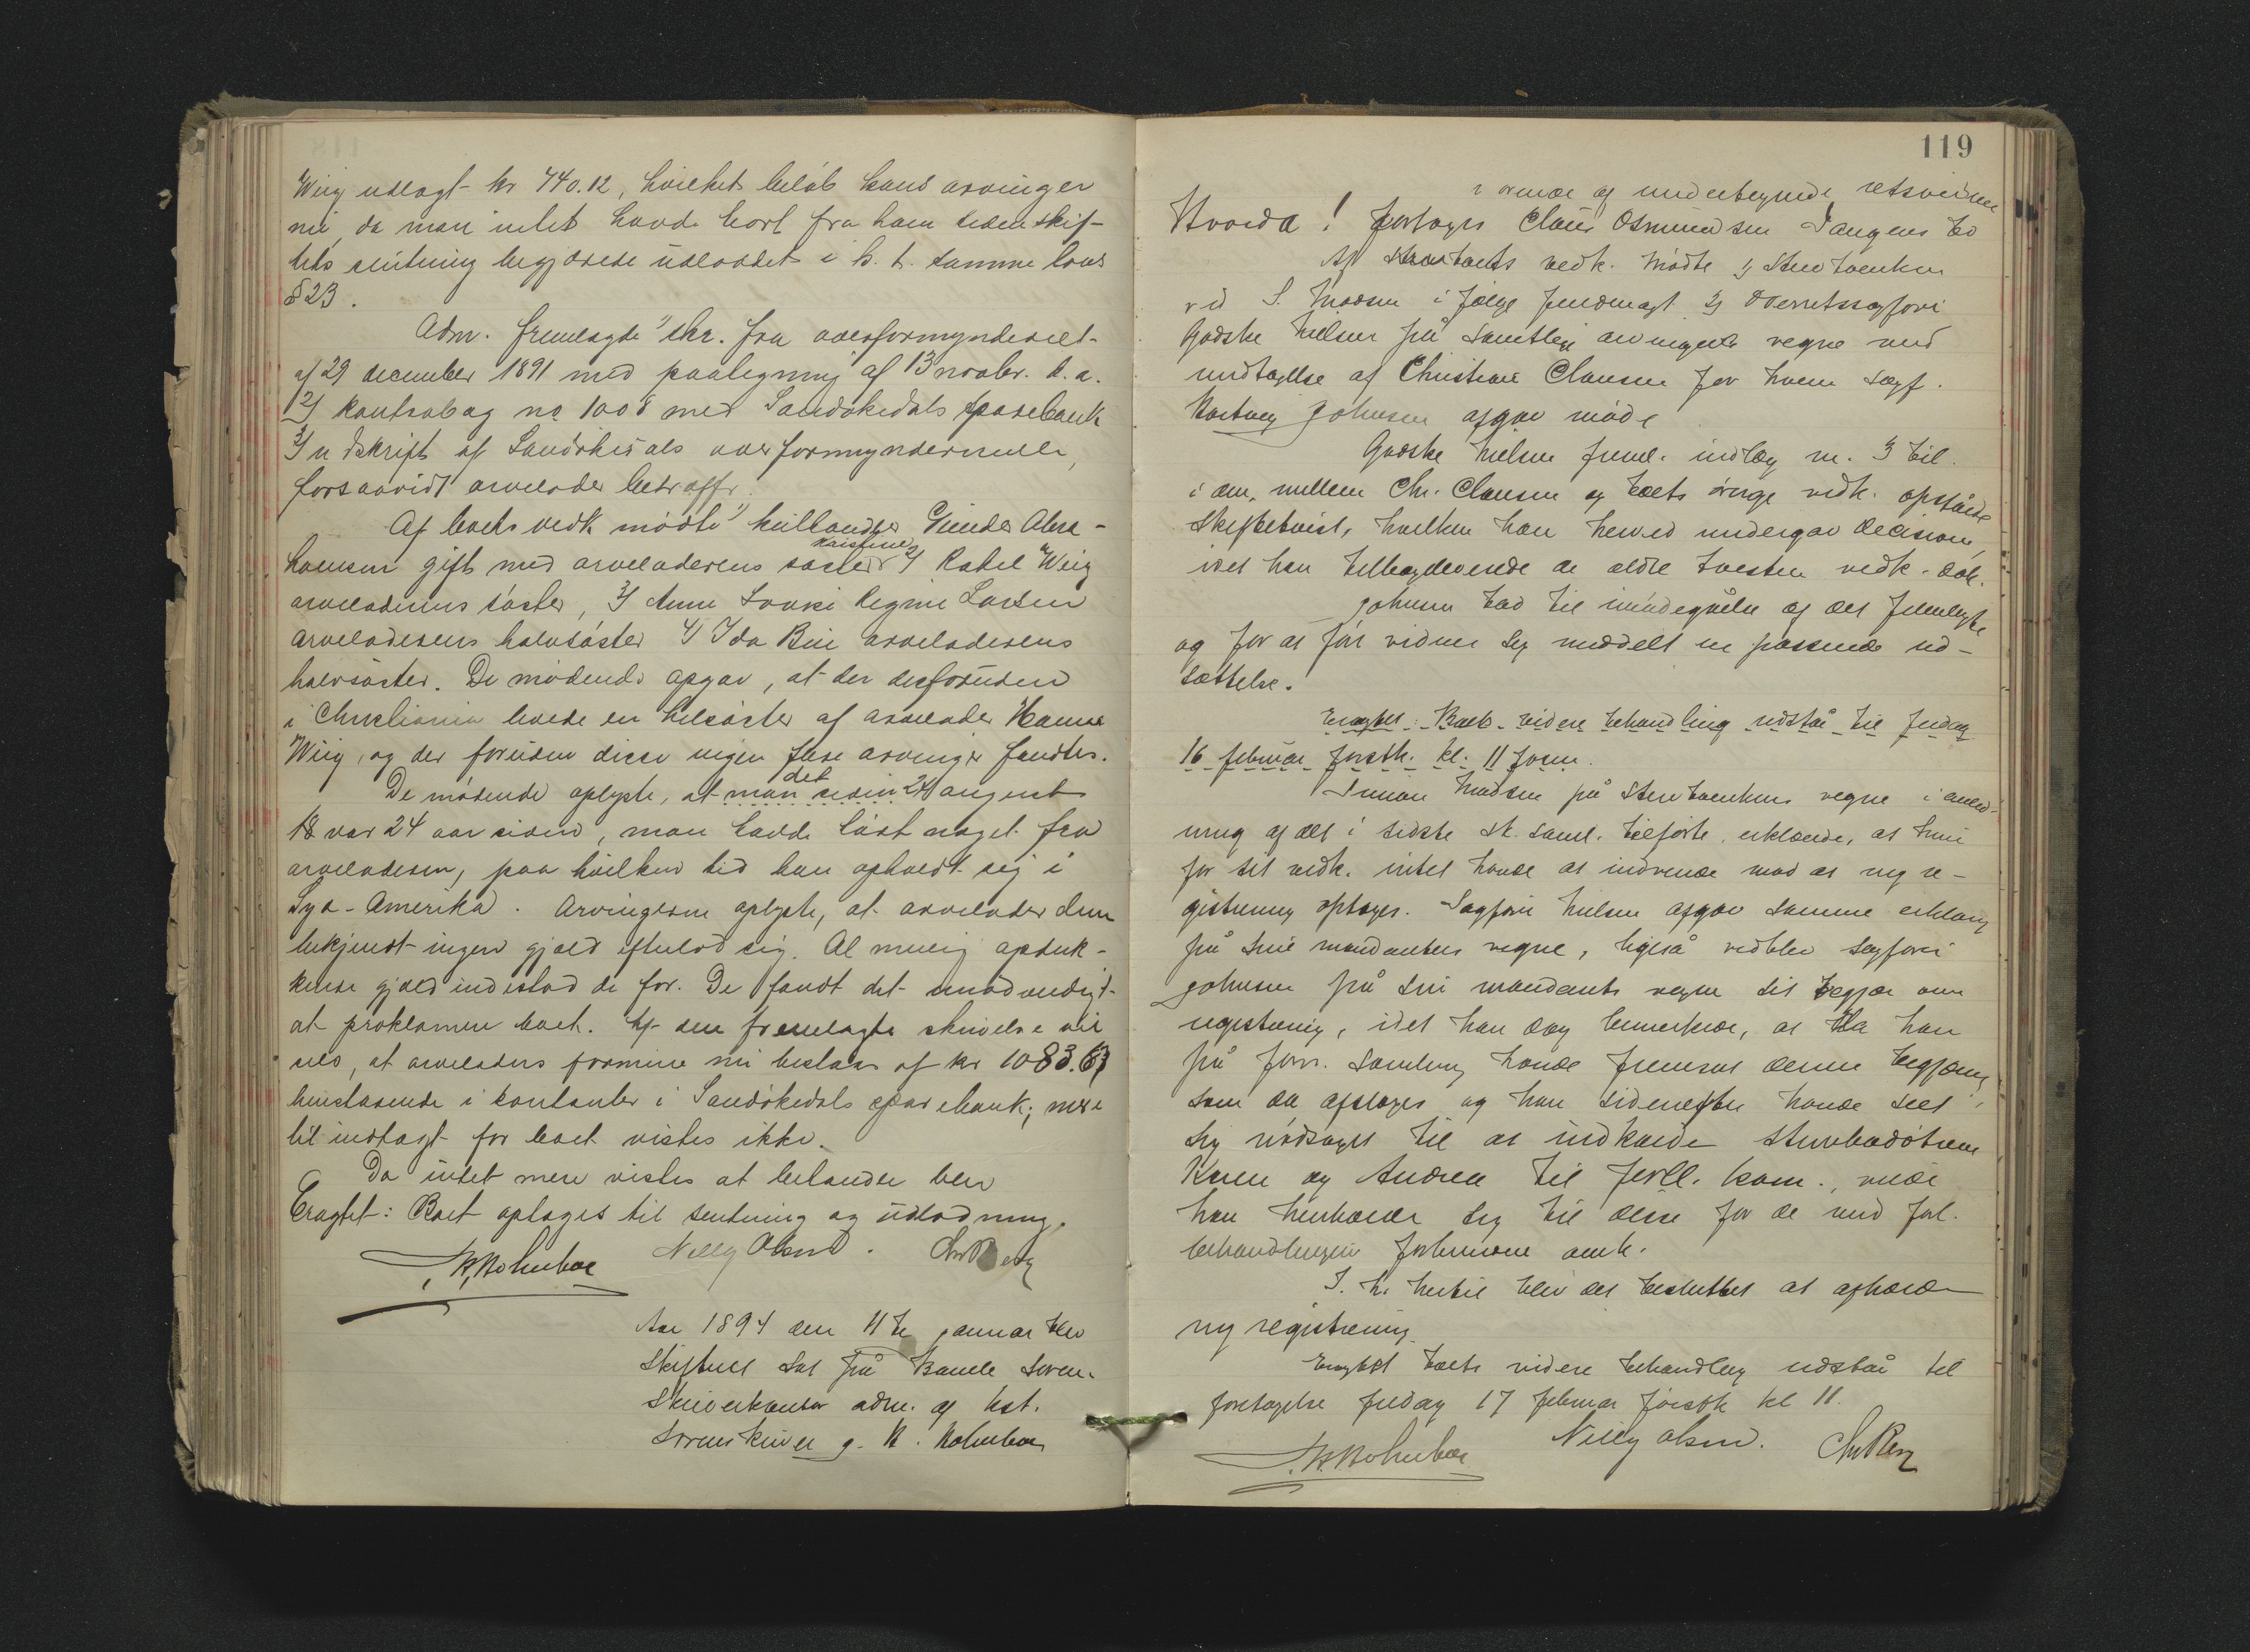 Wiig udlagt kr 740.12, hvilket beløb hans arvinger
nu, da man intet havde hørt fra ham siden skif-
tets slutning begjærede udloddet i h. t. samme lovs
§ 23.
Adm. fremlagde 1) skr. fra overformynderiet
af 29 december 1891 med paategning af 13 novbr. d. a.
2) kontrabog no 1008 med Sandøkedals sparebank
3) udskrift af Sandøkedals overformynderrulle,
forsaavidt arvelader betræffer.
Af boets vedk. mødte 1) Gunder Abra-
hamsen gift med arveladerens søster Kristine 2) Rakel Wiig
arveladerens søster, 3) Anne Lovise Regine Larsen
arveladerens halvsøster 4) Ida Bie arveladerens
halvsøster. De mødende opgav, at der desforuden
i Christiania levede en helsøster af arvelader Hanna
Wiig, og der foruden disse ingen flere arvinger fandtes.
De mødende oplyste, at man det siden 24 august
18 var 24 aar siden, man havde hørt noget fra
arveladeren, paa hvilken tid han opholdt sig i
Syd-Amerika. Arvingerne oplyste, at arvelader dem
bekjendt ingen gjæld efterlod sig. Al mulig opduk-
kende gjæld indestod de for. De fandt det unødvendigt
at proklamere boet. Af den fremlagte skrivelse vil
sees, at arveladers formue nu bestaar af kr 1083.63
henstaaende i kontanter i Sandøkedals sparebank; mere
til indtægt for boet vistes ikke.
Da intet mere vistes at behandle blev
Eragtet: Boet optages til slutning og udlodning.
Nelly Olsen.
Aar 1894 den 11te januar blev
Skifteret sat på Bamle Soren-
skriverkontor adm. af kst.
Sorenskriver g. K. Holmboe
119
i orværr af undertegnede retsvidner
Hvorda! foretoges Claus Osmundsen Tangens bo
Af boets vedk. mødte 1) Stervboenken
ved S. Madsen i følge fuldmagt 2) Overretssagfører
Gødske Nielsen på samtlige arvingers vegne med
undtagelse af Christiane Clausen for hvem sagf.
Johnsen afgav møde
Gødske Nielsen freml. indlæg m. 3 bil.
i an. mellem Chr. Clausen og boets øvrige vedk. opståede
Skiftetvist, hvilken han herved undergav decision,
idet han tilbageleverede de ældre tvisten vedk. dok.
Johnsen bad til imødegåelse af det fremlagte
og for at få vidner sig meddelt en passende ud-
sættelse.
Eragtet: Boets videre behandling udstår til fredag
16 februar førstk. kl. 11 form.
Simon Madsen på Stervboenkens vegne i anled-
ning af det i sidste sk. saml. tilførte, erklærede, at hun
for sit vedk. intet havde at indvende mod at ny re-
gistrering optages. Sagfører Nielsen afgav samme erklæring
på sine mandanters vegne, ligeså vedblev sagfører
Johnsen på sin mandants vegne sit begjær om
registrering, idet han dog bemerkede, at da han
på forr. samling havde fremsat denne begjæring
som da afsloges og han sidenefter havde seet
sig nødsaget til at indkalde stervbodøtrene
Karen og Andrea til forl. kom., vilde
han henholde sig til disse for de med forl.
behandlingen forbundne omk.
I. h. hertil blev det besluttet at afholde
ny registrering.
Eragtet boets videre behandling udstår til
foretagelse fredag 17 februar førstk kl 11.
Nelly Olsen.